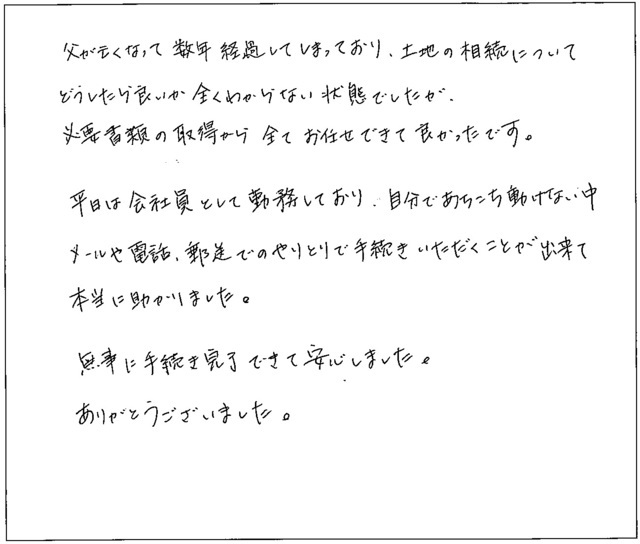 父が亡くなって数年経過してしまっており、土地の相続について
どうしたら良いか全くわからない状態でしたが、
必要書類の取得から全てお任せできて良かったです。
平日は会社員として勤務しており、自分であちこち動けない中
メールや電話、郵送でのやりとりで手続きいただくことが出来て
本当に助かりました。
無事に手続き完了できて安心しました。
ありがとうございました。